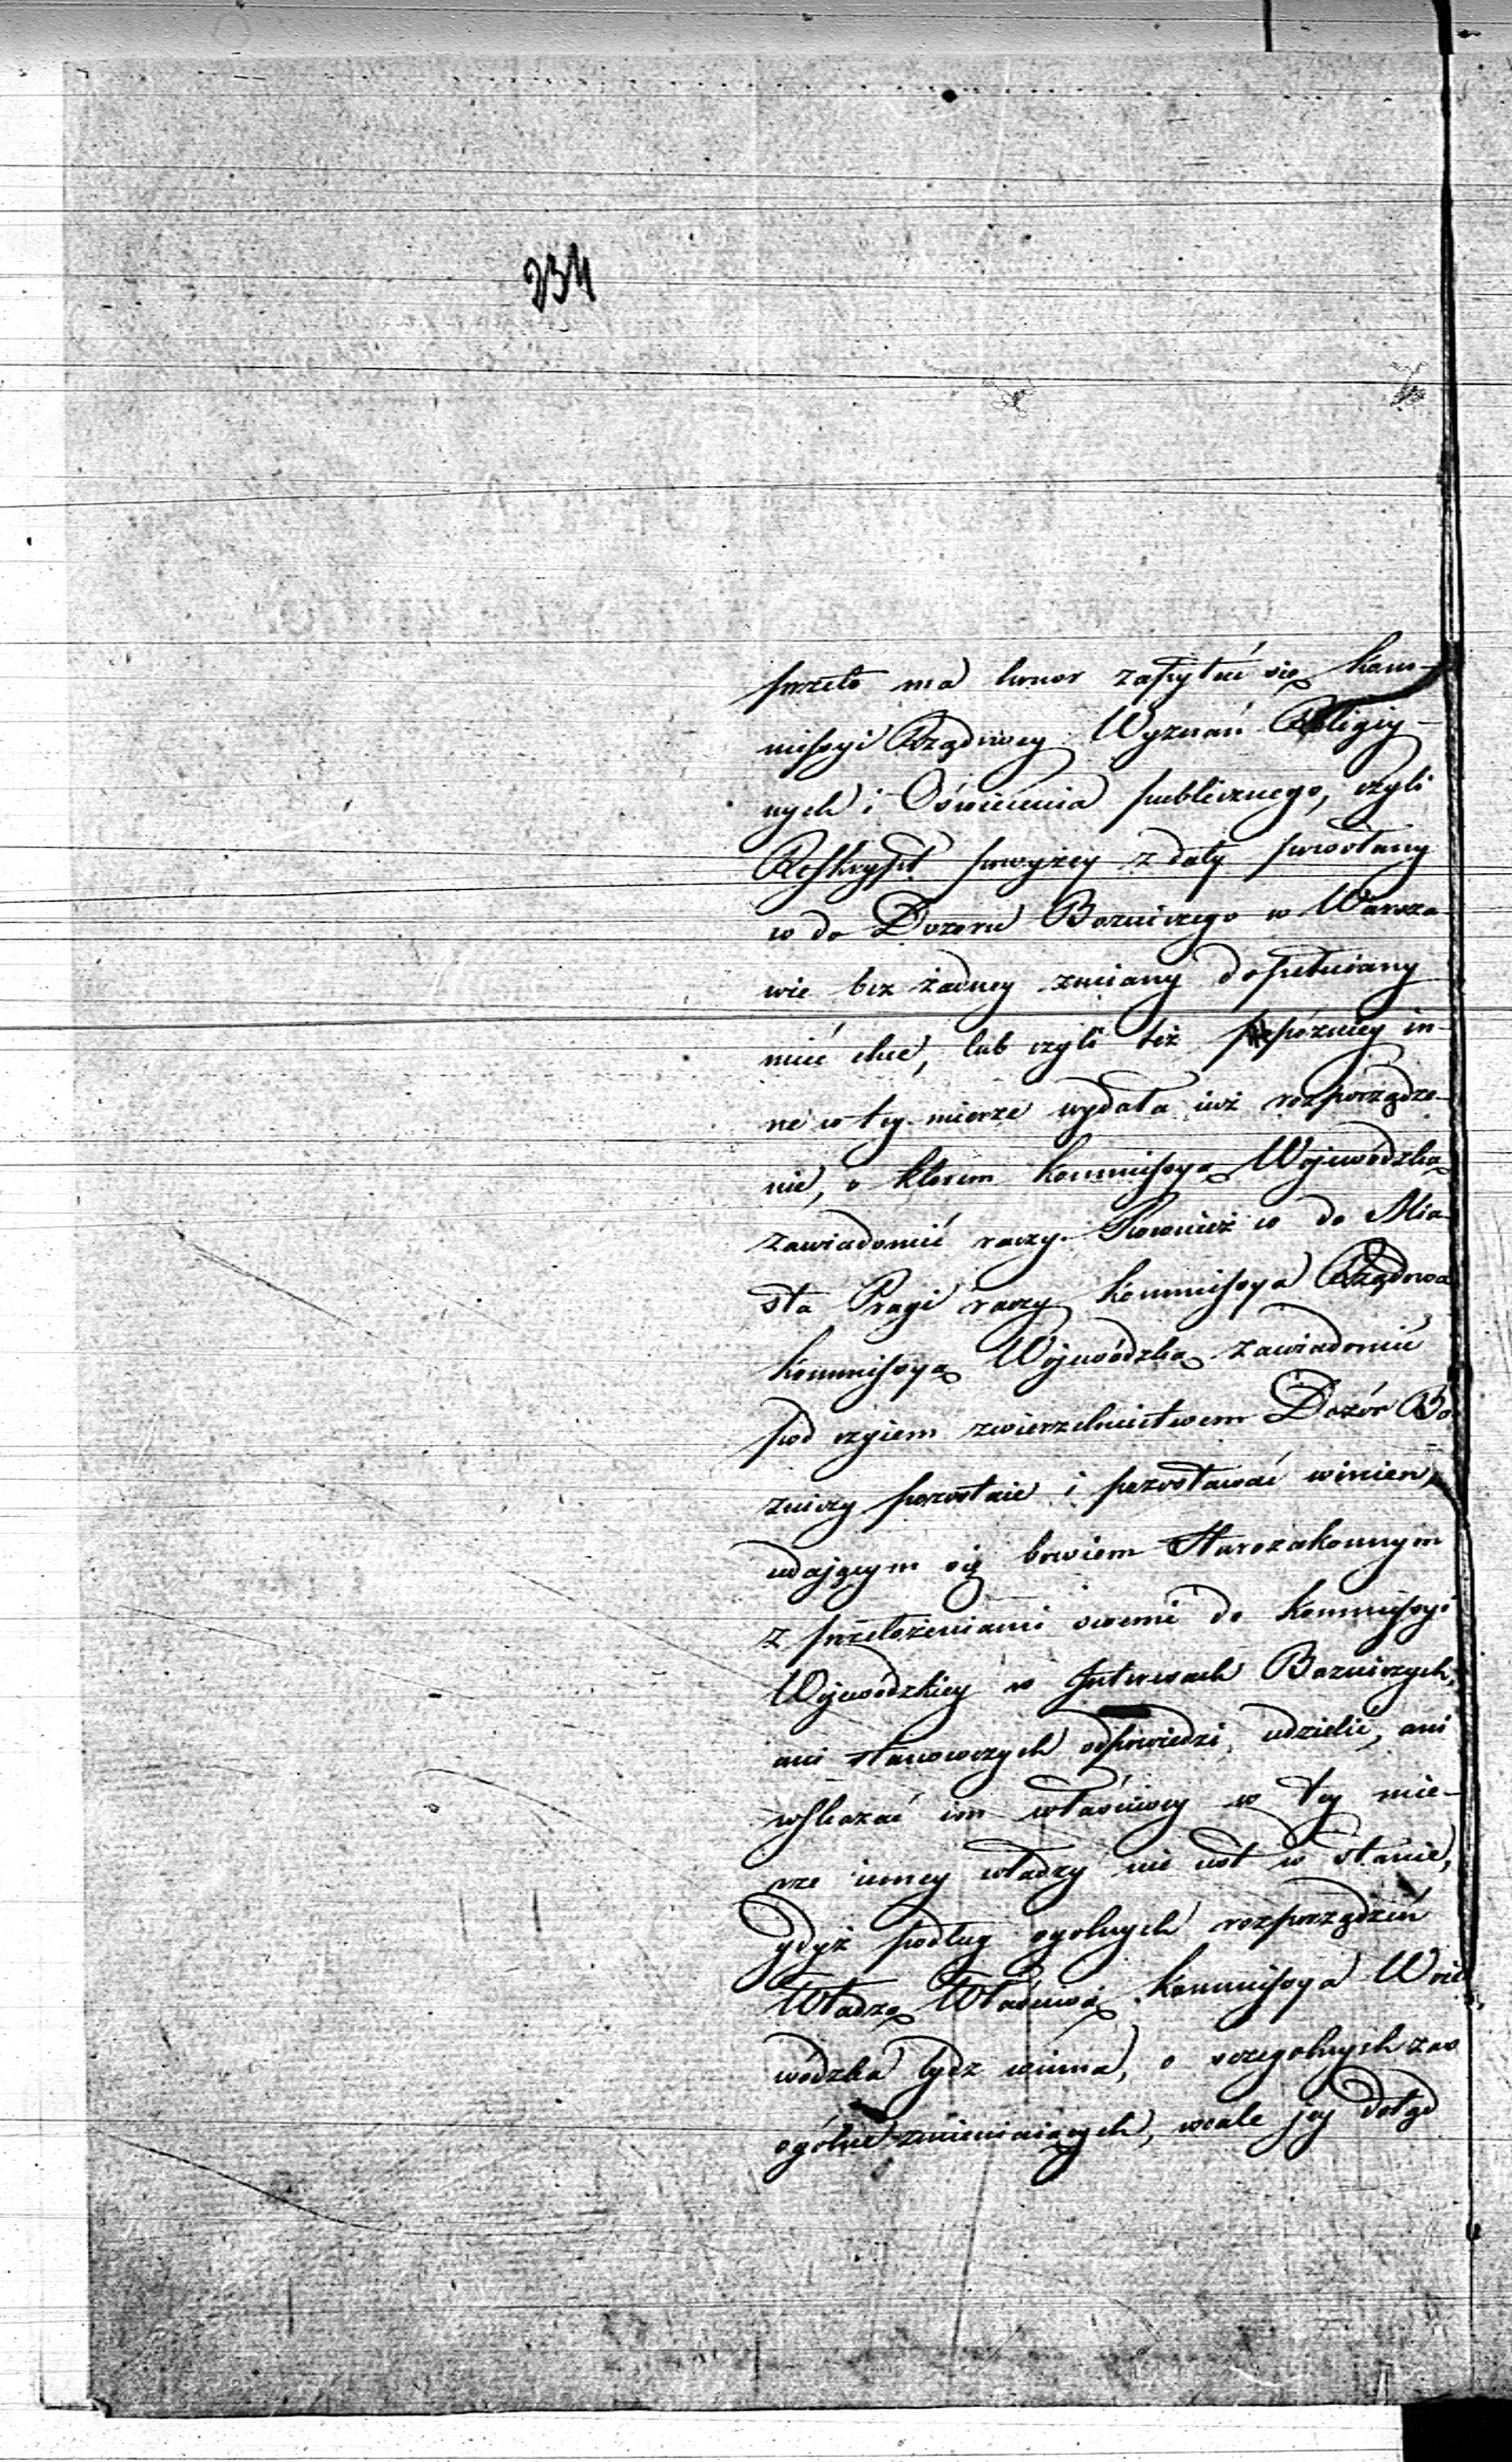 234
przeto ma honor zapytać się Kom-
missyi Rządowey Wyznań Religiy-
nych i Oświecenia publicznego, czyli
Reskrypt powyżey z daty powołany
co do Dozoru Boznicznego w Warsza-
wie bez żadney zmiany dopełniany
mieć chce, lub czyli też poźniey in-
ne w tey mierze wydała iuż rozporządze-
nie, o ktorem Kommissyą Wojewódzką
zawiadomić raczy. Rownież co do Mia-
sta Pragi raczy Kommissya Rządowa
Kommissyą Wojewódzką zawiadomić
pod czyiem zwierzchnictwem Dozór Bo-
zniczy pozostaie i pozostawać winien,
udającym się bowiem Starozakonnym
z przełożeniami swemi do Kommissyi
Wojewodzkiey w Interesach Bozniczych,
ani stanowczych odpowiedzi udzielić, ani
wskazać im właściwey w tey mie-
rze inney władzy nie iest w stanie,
gdyż podług ogolnych rozporządzeń
Władzą Właściwą Kommissya Woie-
wódzka bydz winna, o szczegolnych zas
ogólne zmieniaiących, wcale jey dotąd